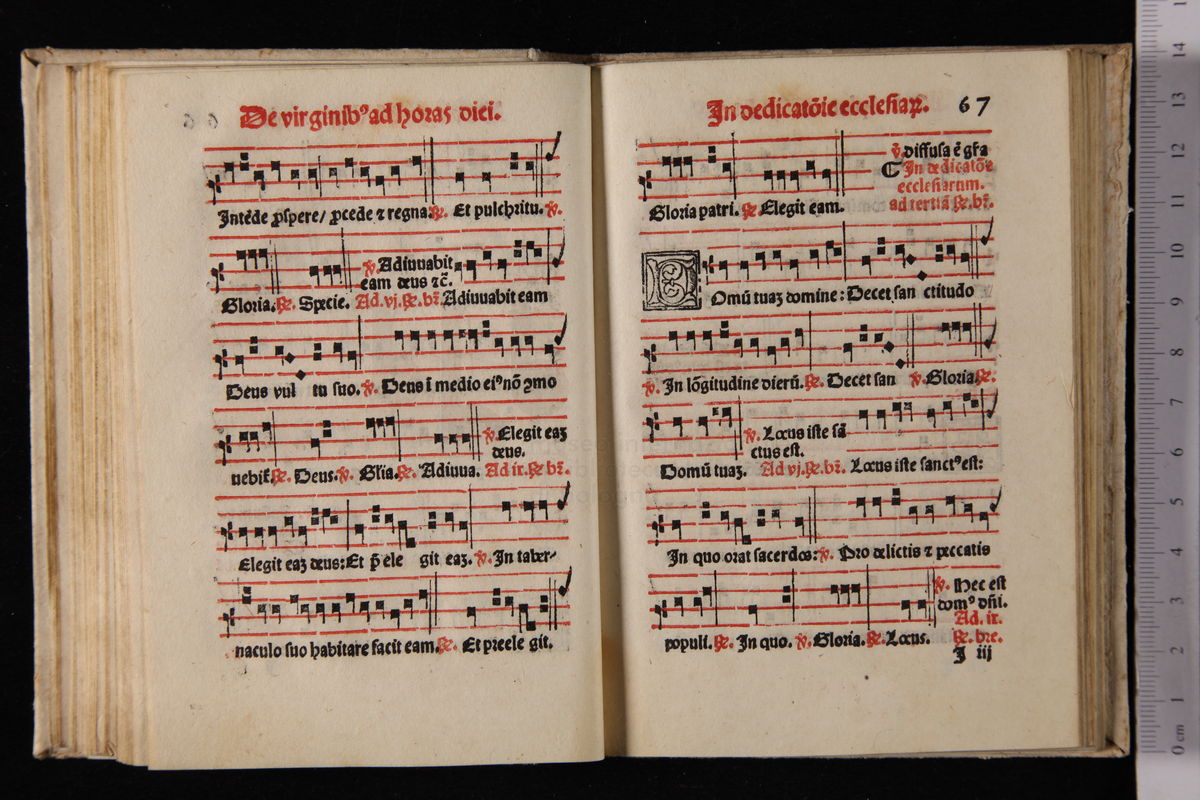 De virginibꝰ ad horas diei.
Intẽde ꝓspere/ ꝓcede ⁊ regna. ℟. Et pulchritu. ℣.
℣. Adiuuabit
eam deus ⁊c̃.
Gloria. ℟. Specie. Ad. vj. ℟. br̃. Adiuuabit eam
Deus vul tu suo. ℣. Deus ĩ medio eiꝰ nõ ꝯmo
℣. Elegit eaꝫ
deus.
uebit̃. ℟. Deus. ℣. Gl̃ia. ℟. Adiuua. Ad ix. ℟. br̃.
Elegit eaꝫ deus: Et p̃ ele git eaꝫ. ℣. In taber-
naculo suo habitare facit eam. ℟. Et preele git.
In dedicatõie ecclesiaꝝ. 67
℣. diffusa ẽ gr̃a
In dedicatõe
ecclesiarum.
ad tertiã ℟. br̃.
Gloria patri. ℟. Elegit eam.
Domũ tuaꝫ domine: Decet san ctitudo
℣. In lõgitudine dierũ. ℟. Decet san ℣. Gloria. ℟.
℣. Locus iste sã
ctus est.
Domũ tuaꝫ. Ad vj. ℟. br̃. Locus iste sanctꝰ est:
In quo orat sacerdos: ℣. Pro delictis ⁊ peccatis
℣. Hec est
domꝰ dñi.
Ad. ix.
populi. ℟. In quo. ℣. Gloria. ℟. Locus. ℟. bre.
I iij
0 cm 1 2 3 4 5 6 7 8 9 10 11 12 13 14